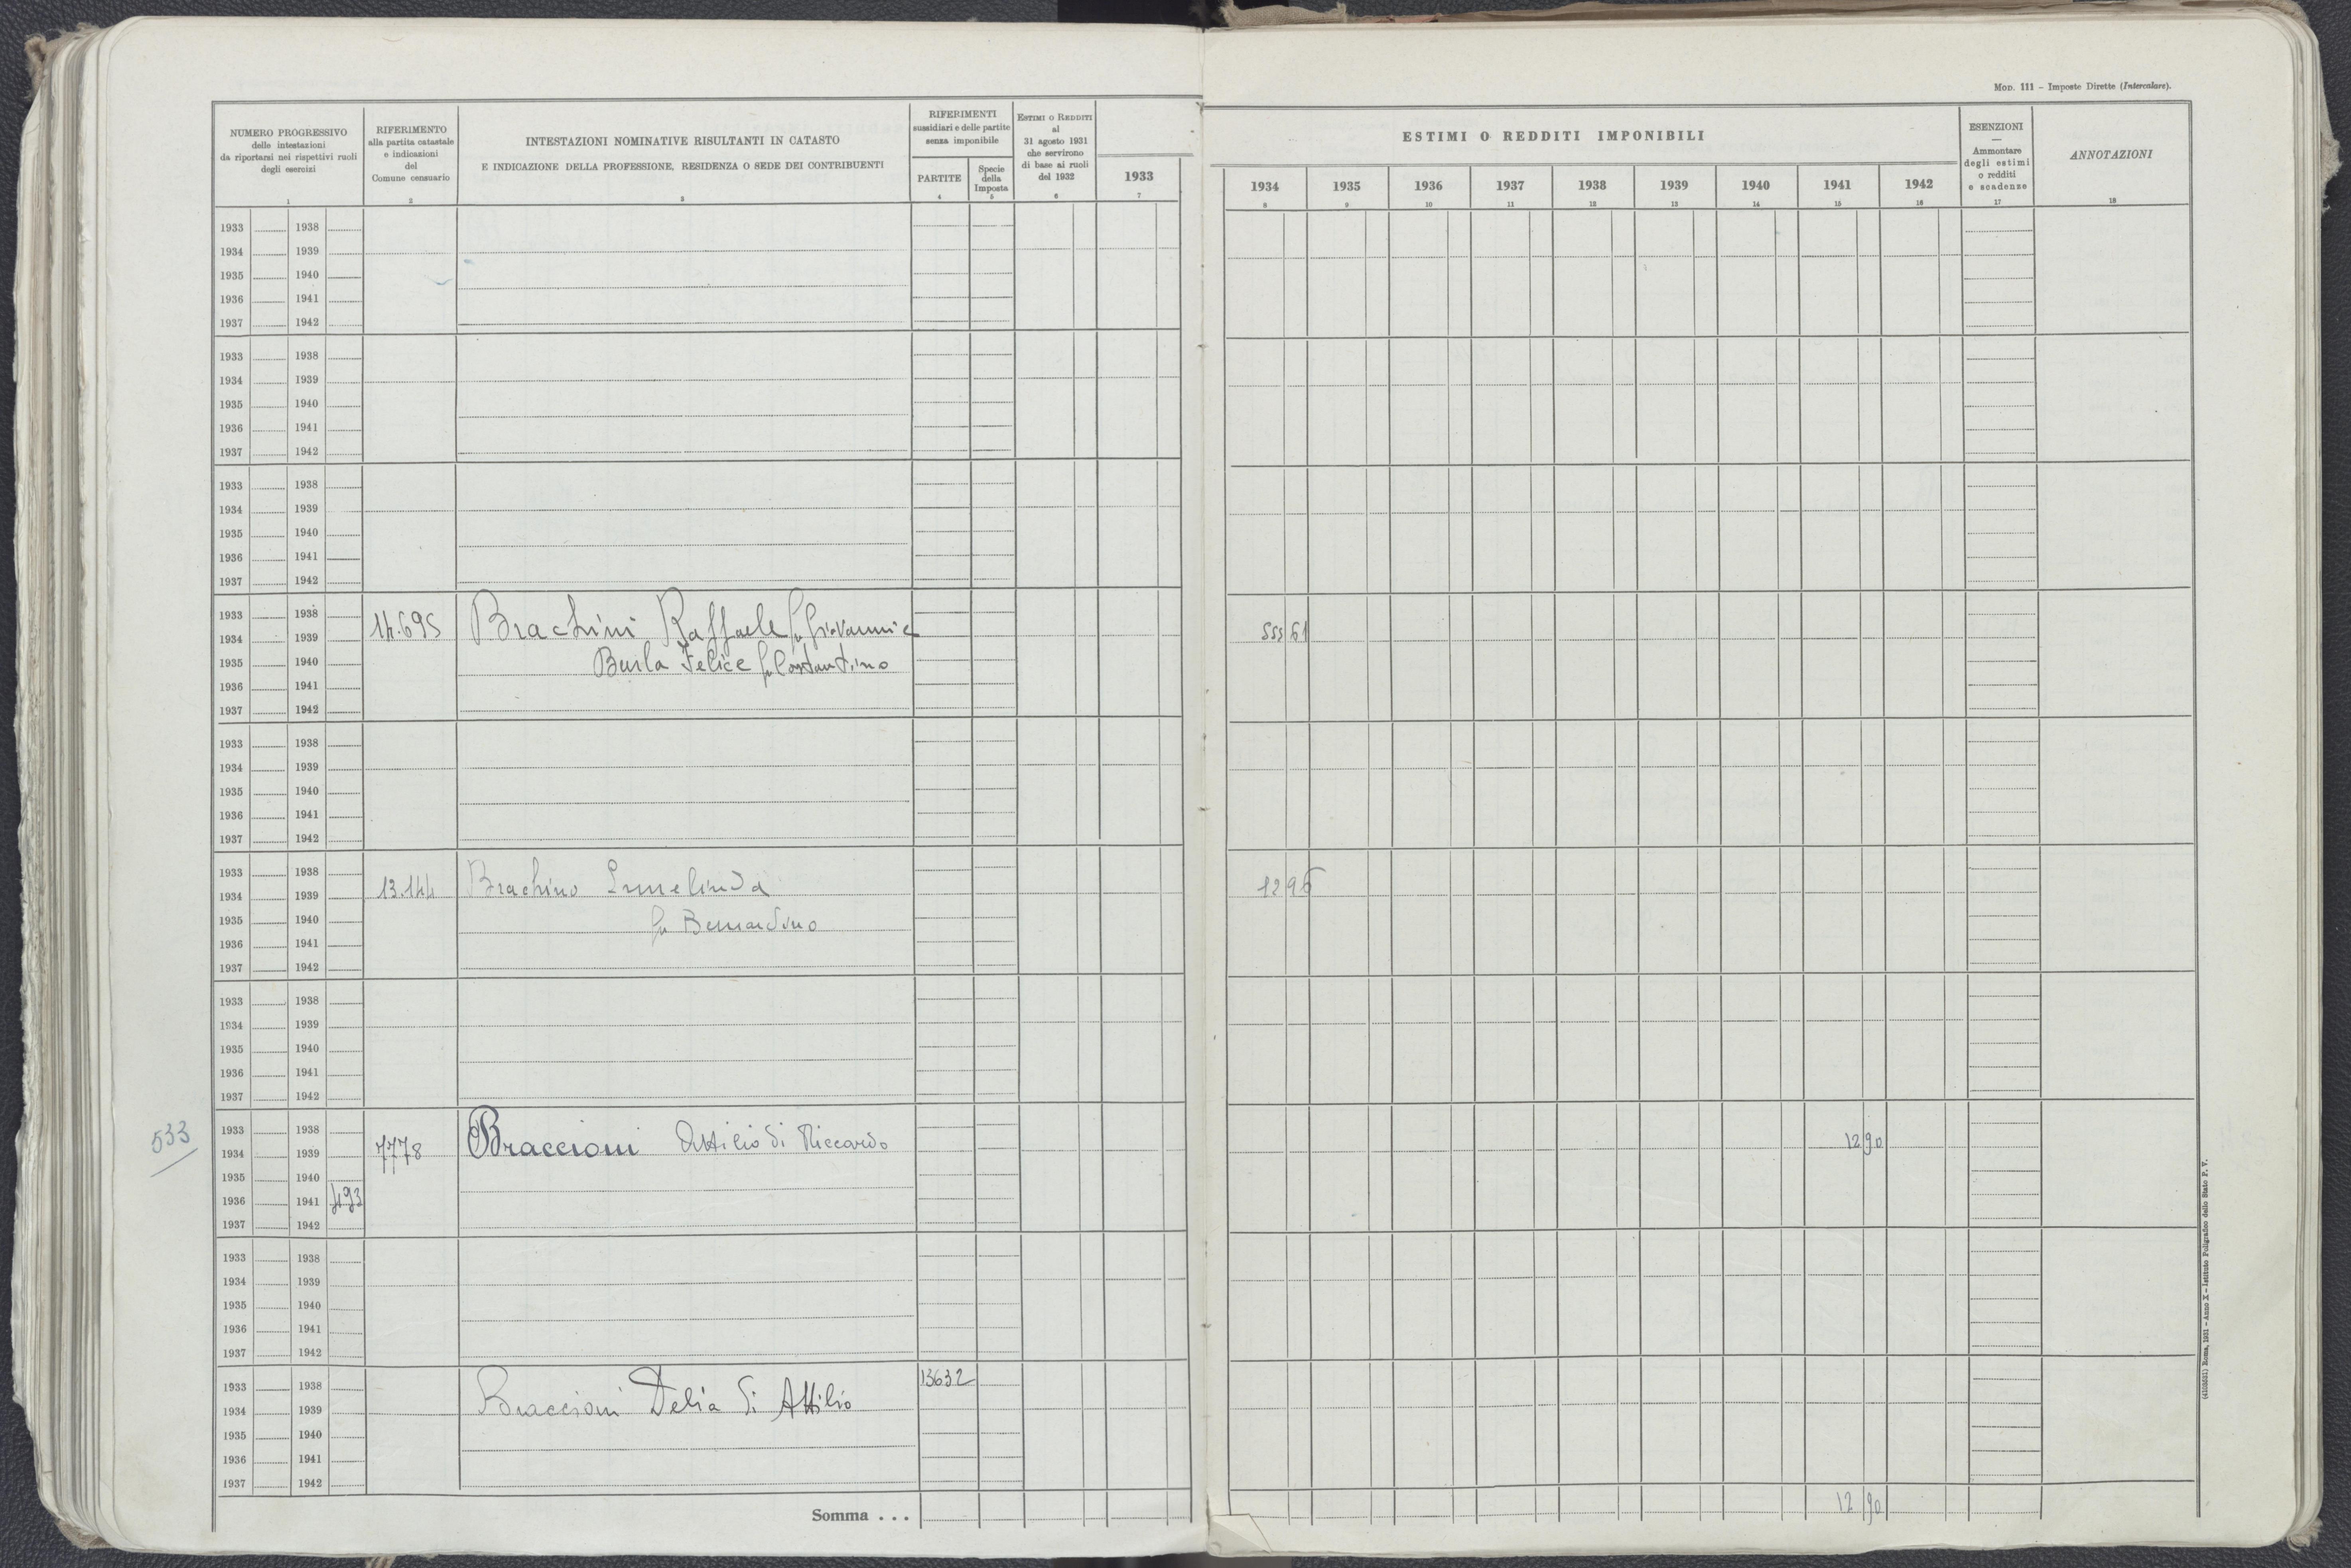 Mod. 111 – Imposte Dirette (Intercalare).
NUMERO PROGRESSIVO
delle intestazioni
da riportarsi nei rispettivi ruoli
degli esercizi
1
RIFERIMENTO
alla partita catastale
e indicazioni
del
Comune censuario
2
INTESTAZIONI NOMINATIVE RISULTANTI IN CATASTO
E INDICAZIONE DELLA PROFESSIONE, RESIDENZA O SEDE DEI CONTRIBUENTI
3
RIFERIMENTI
sussidiari e delle partite
senza imponibile
PARTITE
4
Specie
della
Imposta
5
Estimi o Redditi
al
31 agosto 1931
che servirono
di base ai ruoli
del 1932
6
1933
7
ESTIMI O REDDITI IMPONIBILI
1934 1935 1936 1937 1938 1939 1940 1941 1942
8 9 10 11 12 13 14 15 16
ESENZIONI
—
Ammontare
degli estimi
o redditi
e scadenze
17
ANNOTAZIONI
18
1933 1938
1934 1939
1935 1940
1936 1941
1937 1942
1933 1938
1934 1939
1935 1940
1936 1941
1937 1942
1933 1938
1934 1939
1935 1940
1936 1941
1937 1942
1933 1938
1934 1939 14.695 Brachini Raffaele fu Giovanni e 555 61
1935 1940 Burla Felice fu Costantino
1936 1941
1937 1942
1933 1938
1934 1939
1935 1940
1936 1941
1937 1942
1933 1938
1934 1939 13.144 Brachino 12 96
1935 1940 fu Bernardino
1936 1941
1937 1942
1933 1938
1934 1939
1935 1940
1936 1941
1937 1942
533
1933 1938
1934 1939 7778 Braccioni Attilio di Riccardo 12 90
1935 1940
1936 1941 493
1937 1942
1933 1938
1934 1939
1935 1940
1936 1941
1937 1942
1933 1938 13632
1934 1939 Braccioni Delia di Attilio
1935 1940
1936 1941
1937 1942
Somma . . . 12 90
(4103631) Roma, 1931 – Anno X – Istituto Poligrafico dello Stato P. V.